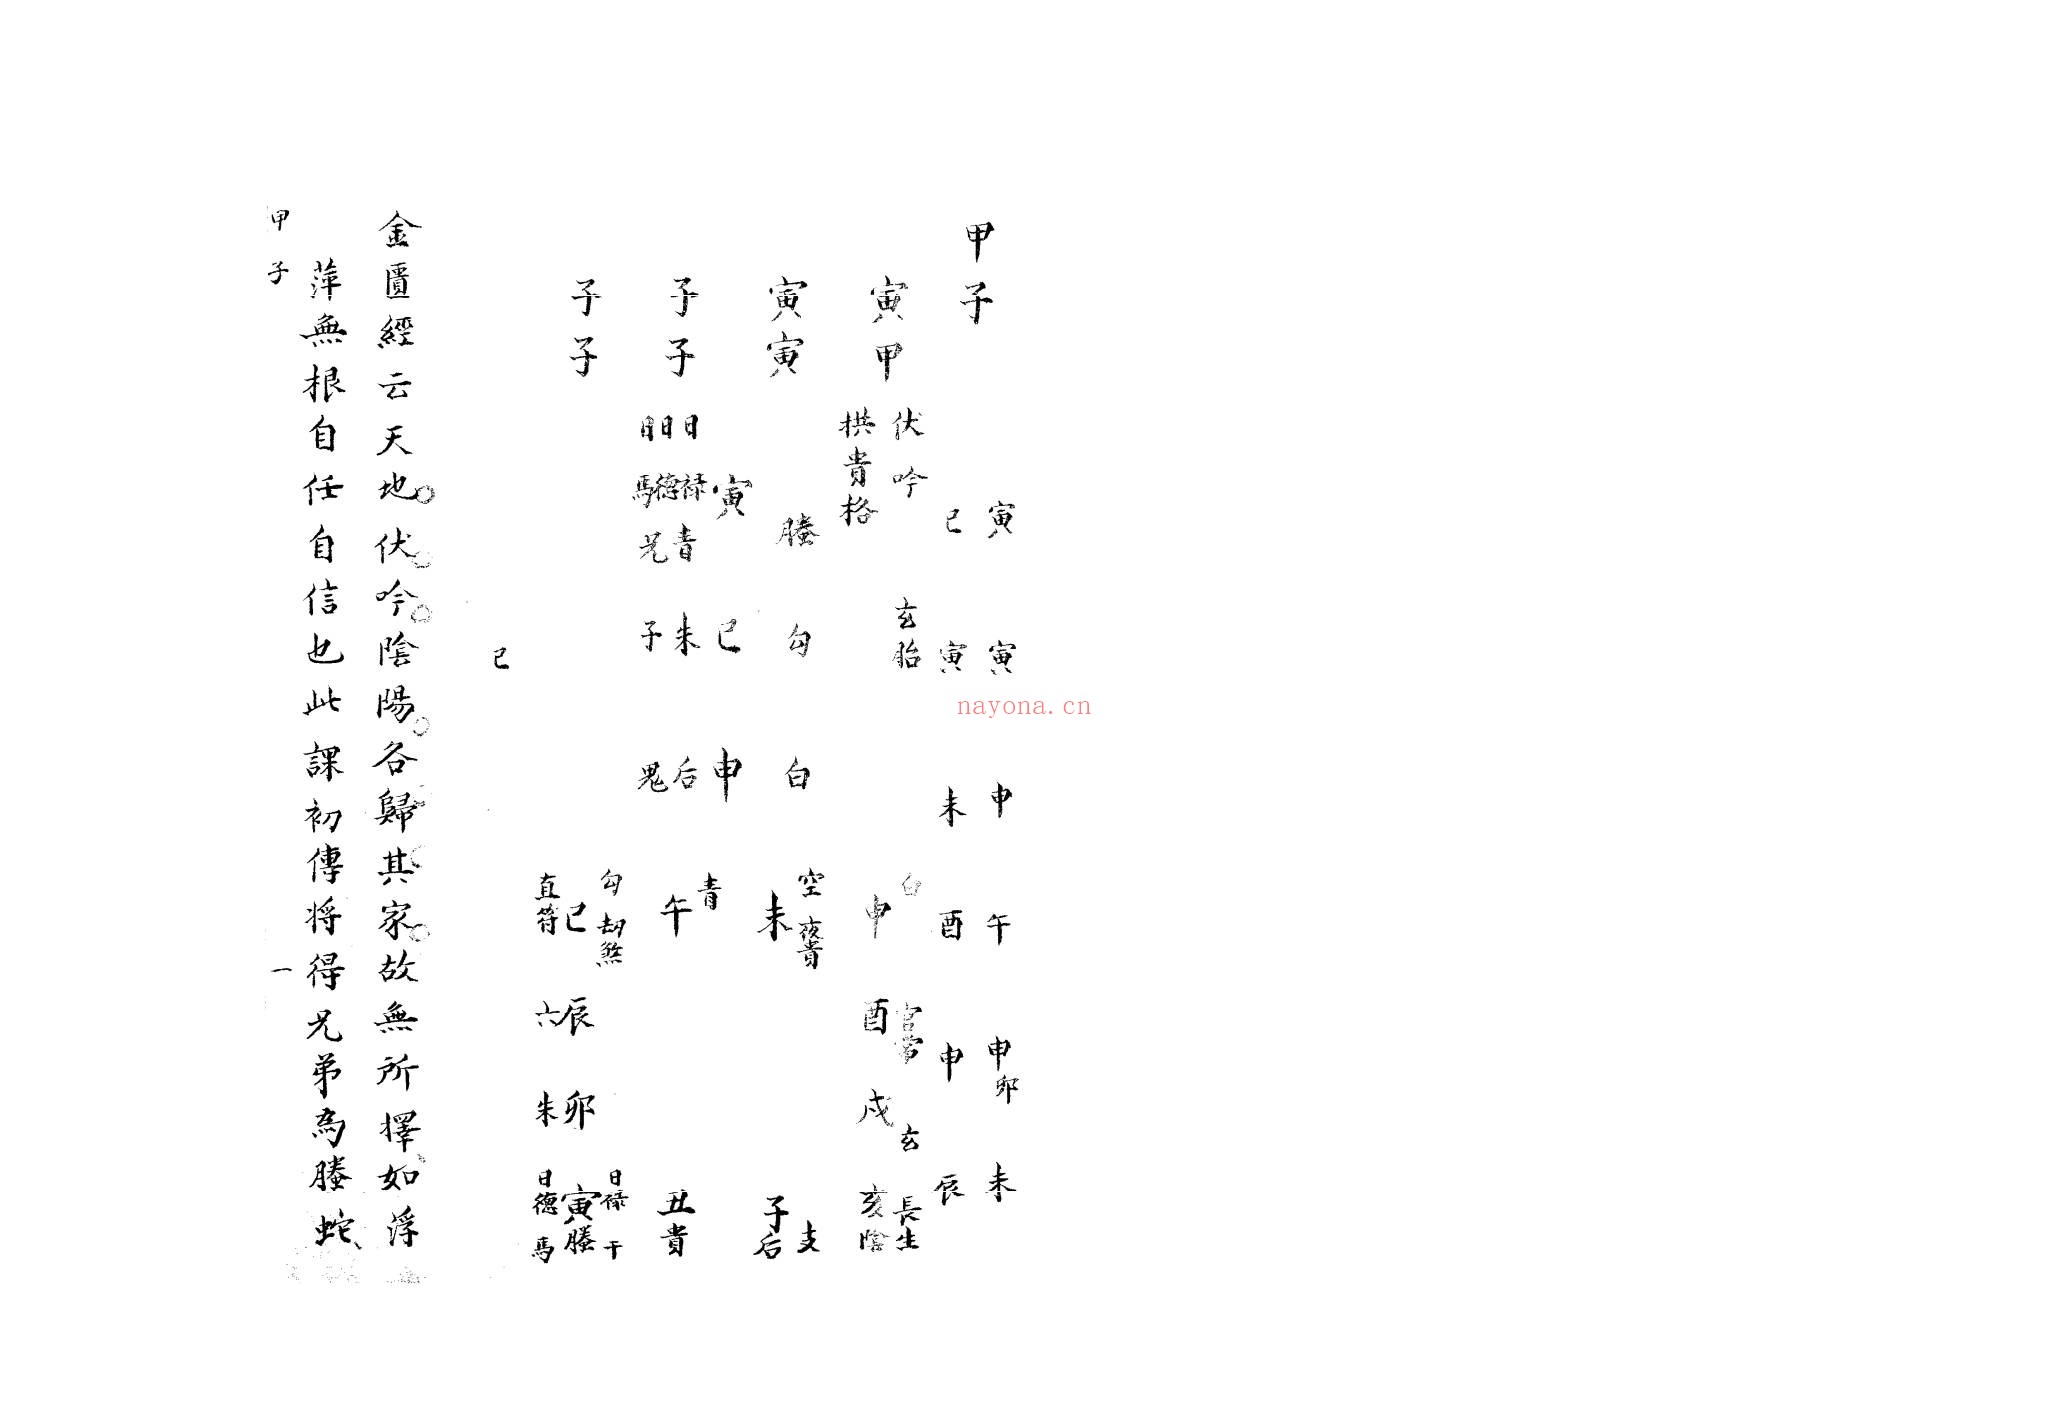 甲子
寅 寅 申 午 申卯 未
巳 寅 未 酉 申 辰
寅甲
伏吟 玄胎
拱貴格
白 官常 玄 長生
申 酉 戌 亥陰
寅寅
螣 勾 白
空夜貴 支
未 子后
子子
寅 巳 申
日祿 青 朱 后
日德 兄 子 鬼
日馬
青
午 丑貴
子子
勾劫煞 日祿干
巳 辰 卯 寅螣
直符 六 朱 日德馬
巳
金匱經云天地伏吟陰陽各歸其家故無所擇如浮
萍無根自任自信也此課初傳将得兄弟為螣蛇
甲子 一
nayona.cn